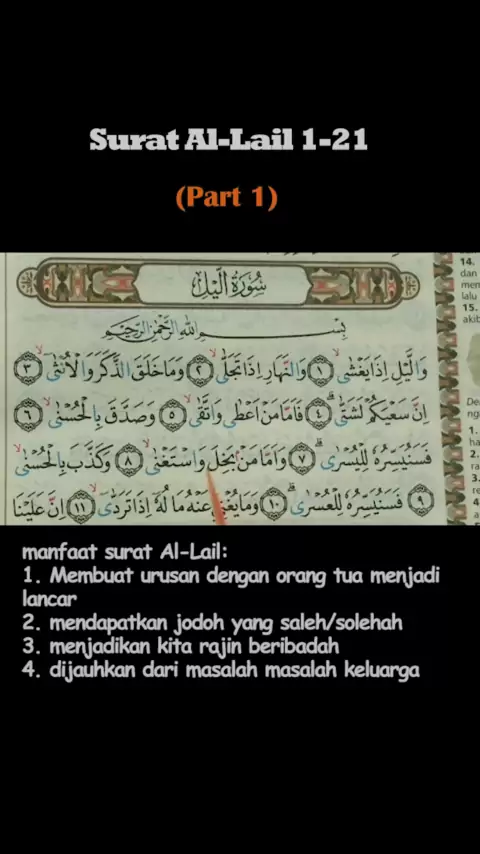 Surat Al-Lail 1-21
(Part 1)
سُورَةُ الَّيْلِ
بِسْــــمِ اللهِ الرَّحْمٰنِ الرَّحِيْمِ
وَالَّيْلِ اِذَا يَغْشٰىۙ ١ وَالنَّهَارِ اِذَا تَجَلّٰىۙ ٢ وَمَا خَلَقَ الذَّكَرَ وَالْاُنْثٰىٓۙ ٣
اِنَّ سَعْيَكُمْ لَشَتّٰىۗ ٤ فَاَمَّا مَنْ اَعْطٰى وَاتَّقٰىۙ ٥ وَصَدَّقَ بِالْحُسْنٰىۙ ٦
فَسَنُيَسِّرُهٗ لِلْيُسْرٰىۗ ٧ وَاَمَّا مَنْۢ بَخِلَ وَاسْتَغْنٰىۙ ٨ وَكَذَّبَ بِالْحُسْنٰىۙ
٩ فَسَنُيَسِّرُهٗ لِلْعُسْرٰىۗ ١٠ وَمَا يُغْنِيْ عَنْهُ مَالُهٗٓ اِذَا تَرَدّٰىۙ ١١ اِنَّ عَلَيْنَا
14.
dan
lalu
15.
akib
1.
2.
3.
4
manfaat surat Al-Lail:
1. Membuat urusan dengan orang tua menjadi
lancar
2. mendapatkan jodoh yang saleh/solehah
3. menjadikan kita rajin beribadah
4. dijauhkan dari masalah masalah keluarga